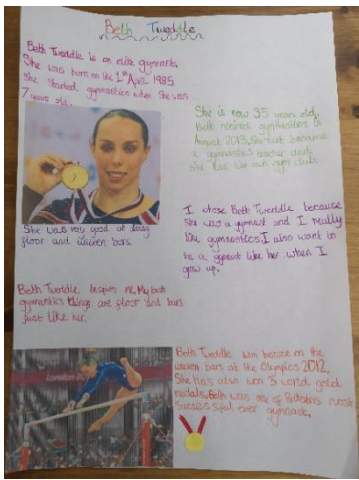 Beth Tweddle
Beth Tweddle is an elite gymnast.
She was born on the 1st April 1985
She started gymnastics when she was
7 years old.
She is now 35 years old,
Beth retired gymnastics in
August 2013. She
a gymnastics and
She has her own gym club.
She was very good at doing
floor and uneven bars.
I chose Beth Tweddle because
She was a gymnast and I really
like gymnastics. I also want to
be a gymnast like her when I
grow up.
Beth Tweddle inspires me. My best
gymnastics things are floor and bars
just like her.
London 20
Beth Tweddle won bronze on the
uneven bars at the Olympics 2012.
She has also won 3 world gold
medals. Beth was one of most
gymnast.